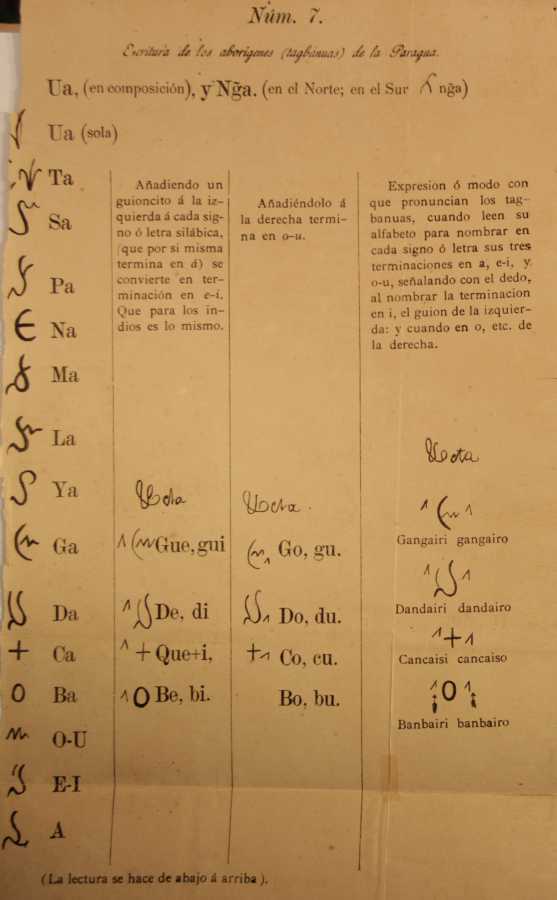 Núm. 7.
Escritura de los aborígenes (tagbanuas) de la Paragua.
Ua, (en composición), y Ng̃a. (en el Norte; en el Sur ng̃a)
Ua (sola)
Ta
Sa
Pa
Na
Ma
La
Ya
Ga
Da
Ca
Ba
O-U
E-I
A
Añadiendo un
guioncito á la iz-
quierda á cada sig-
no ó letra silábica,
(que por si misma
termina en á) se
convierte en ter-
minación en e-i.
Que para los in-
dios es lo mismo.
Gue, gui
De, di
Que+i,
Be, bi.
Añadiéndolo á
la derecha termi-
na en o-u.
Go, gu.
Do, du.
Co, cu.
Bo, bu.
Expresion ó modo con
que pronuncian los tag-
banuas, cuando leen su
alfabeto para nombrar en
cada signo ó letra sus tres
terminaciones en a, e-i, y
o-u, señalando con el dedo,
al nombrar la terminacion
en i, el guion de la izquier-
da: y cuando en o, etc. de
la derecha.
Gangairi gangairo
Dandairi dandairo
Cancaisi cancaiso
Banbairi banbairo
(La lectura se hace de abajo á arriba).